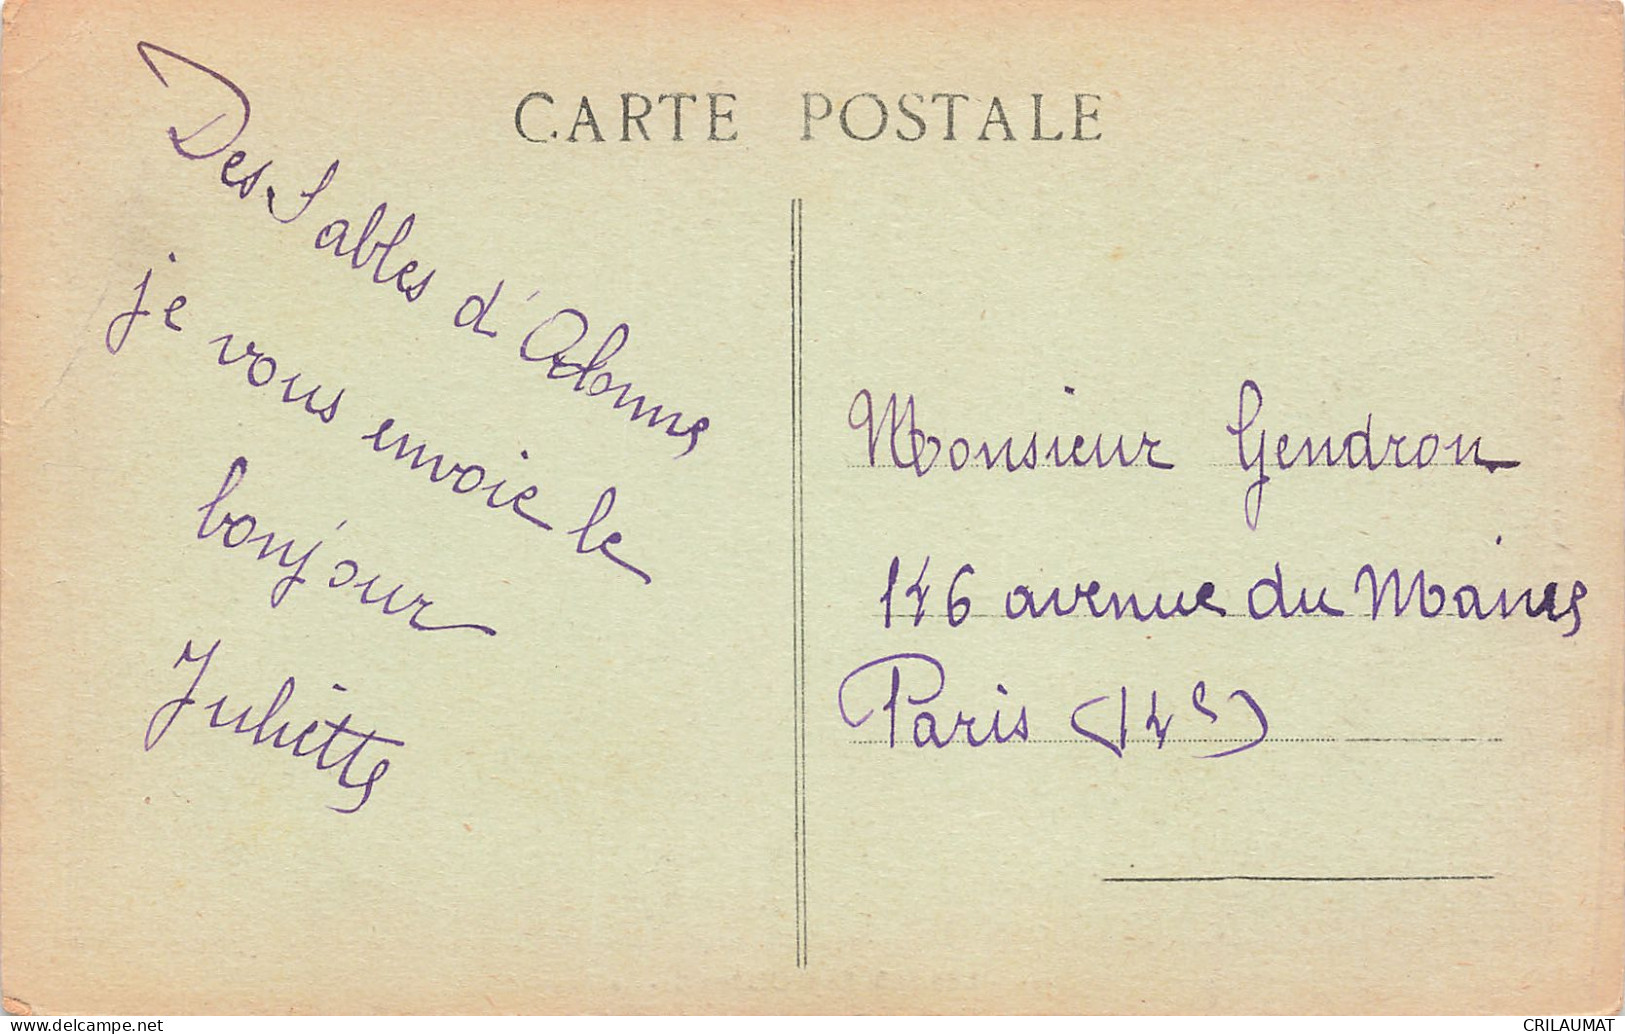 CARTE POSTALE
Des Sables d'Olonnes
je vous envoie le
bonjour
Juliette
Monsieur Gendron
146 avenue du Maine
Paris (14e)
www.delcampe.net
CRILAUMAT